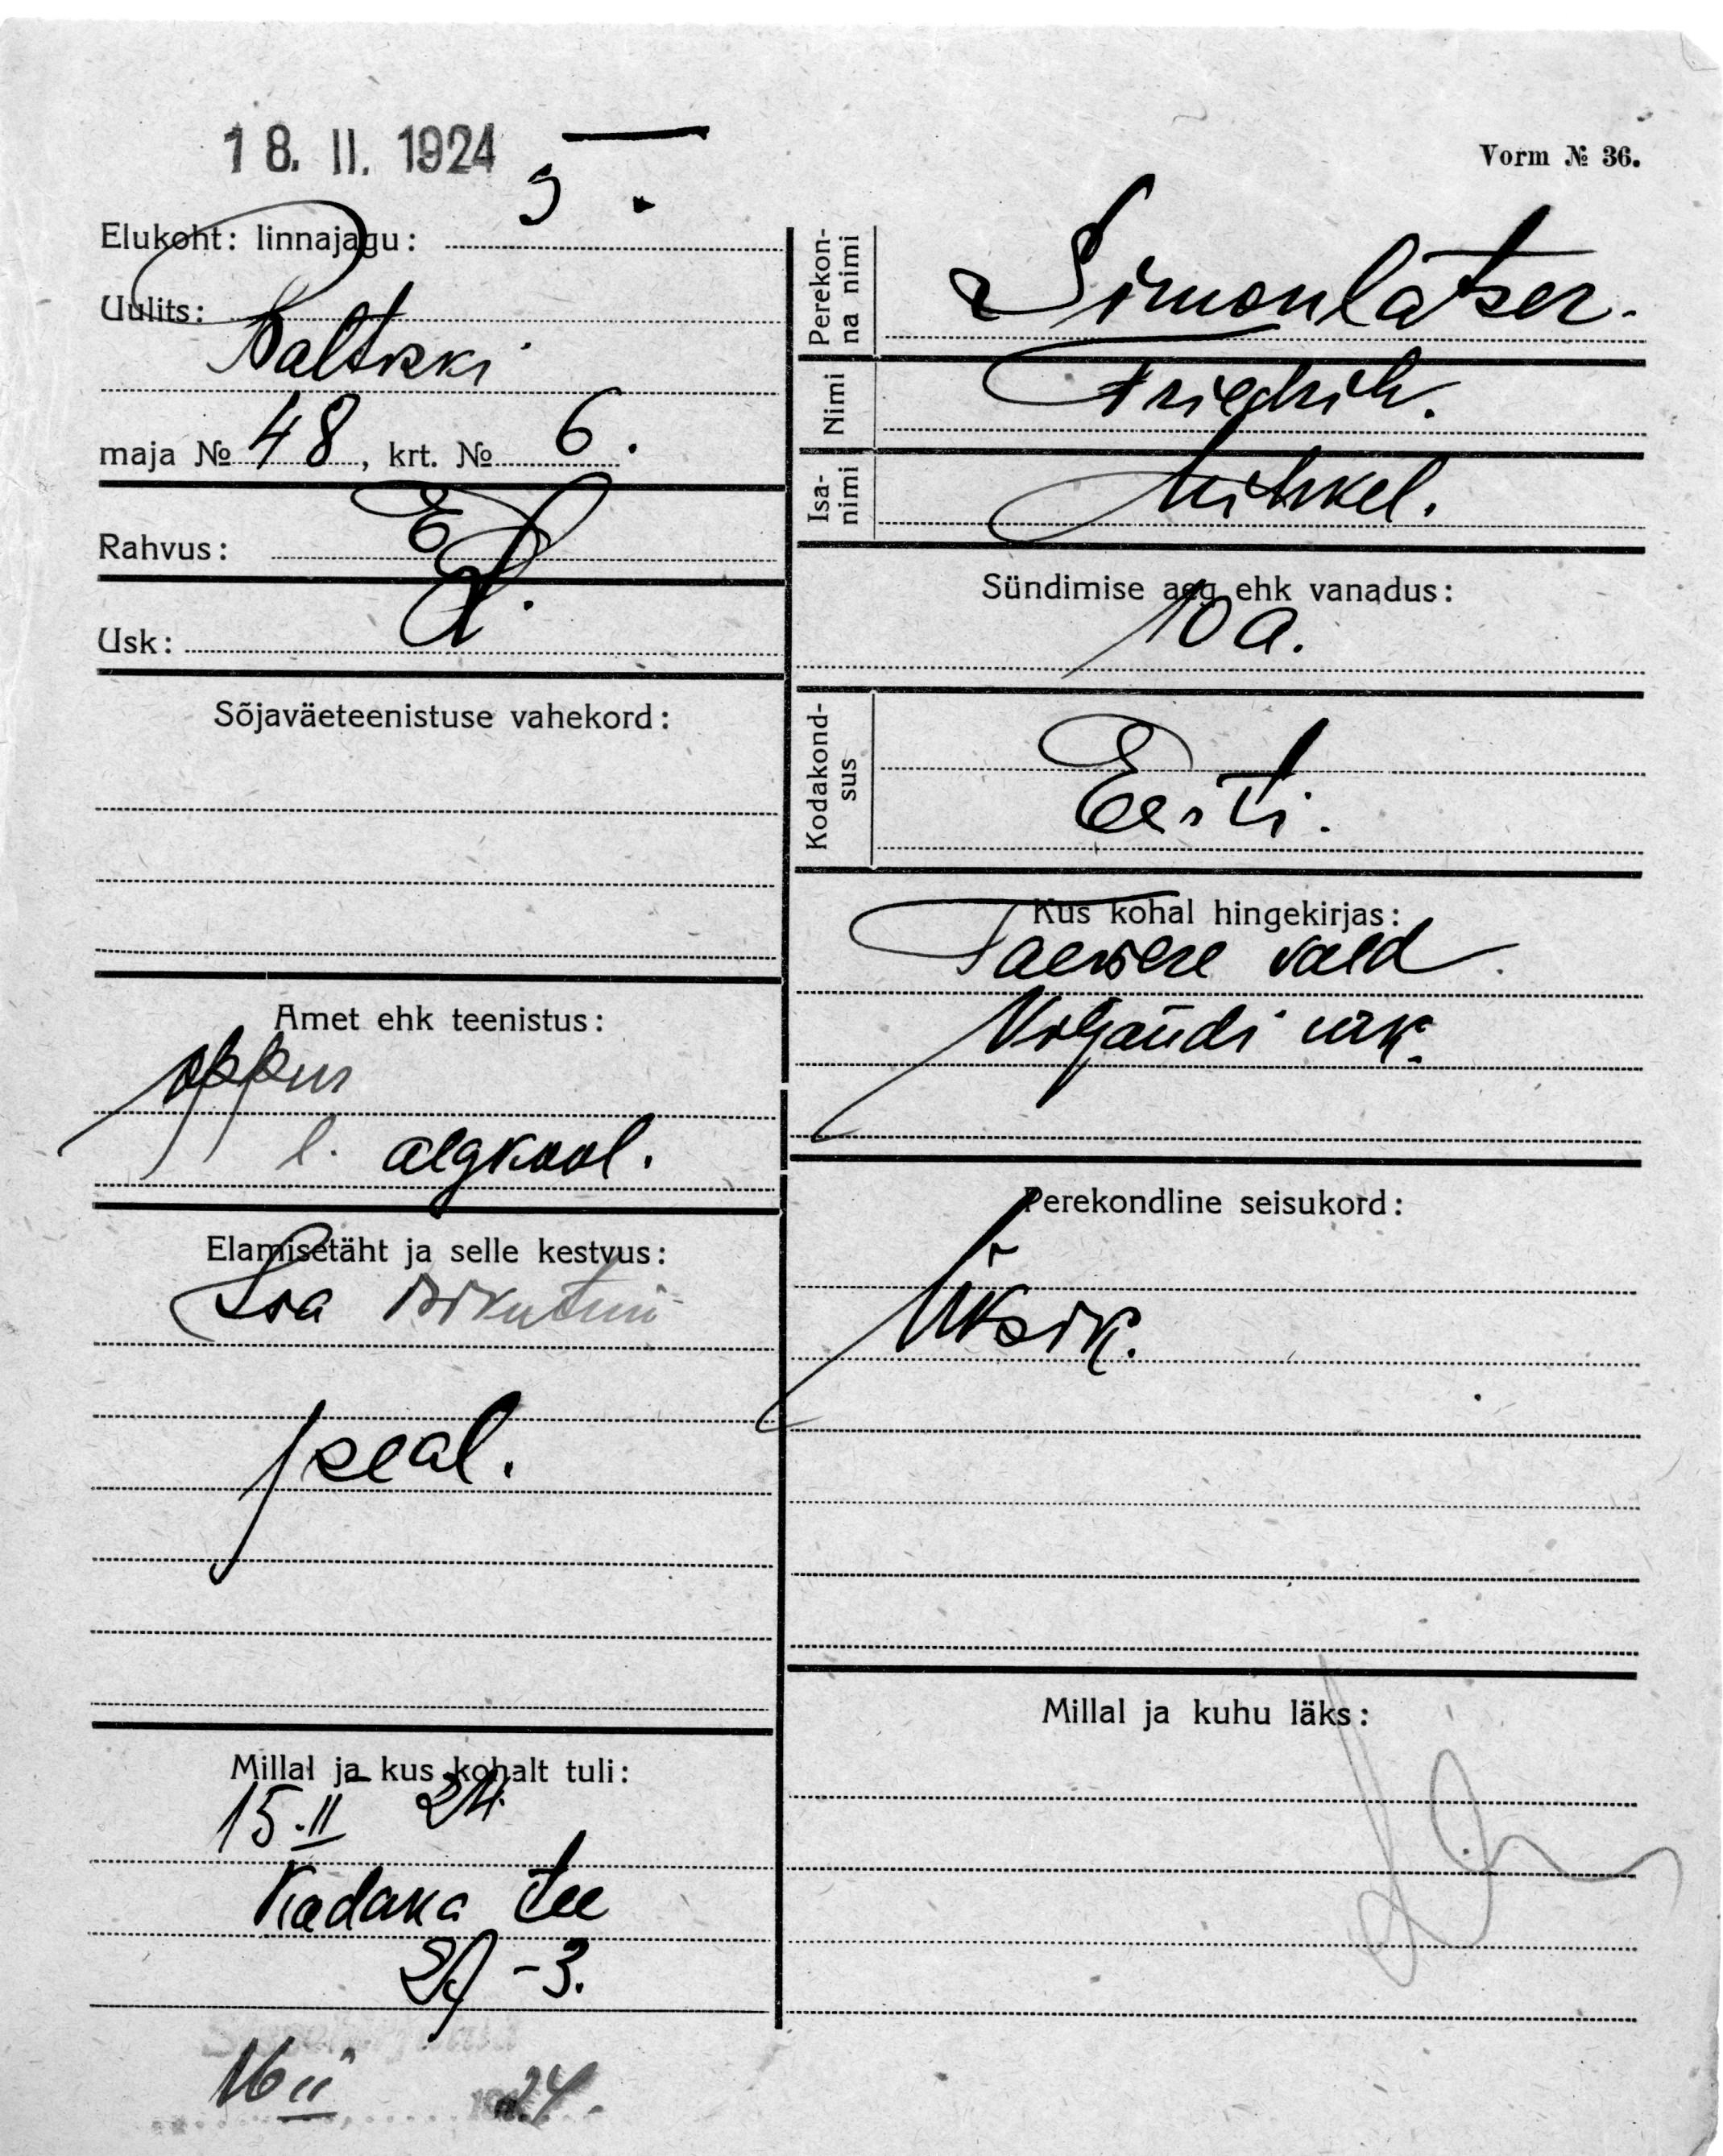 18. II. 1924
Vorm № 36.
Elukoht: linnajagu: 5.
Uulits:
Baltiski
maja № 48, krt. № 6.
Rahvus: E
Usk: L.
Sõjaväeteenistuse vahekord:
Amet ehk teenistus:
õppur
l. algkool.
Elamisetäht ja selle kestvus:
Isa isikutun
peal.
Millal ja kus kohalt tuli:
15.II 24.
Kadaka tee
29 - 3.
16 II 24.
Perekonna nimi
Simonlatser.
Nimi
Friedrih.
Isanimi
Mihkel.
Sündimise aeg ehk vanadus:
10 a.
Kodakondsus
Eesti.
Kus kohal hingekirjas:
Taevere vald.
Viljandi mk.
Perekondline seisukord:
Üksik.
Millal ja kuhu läks: